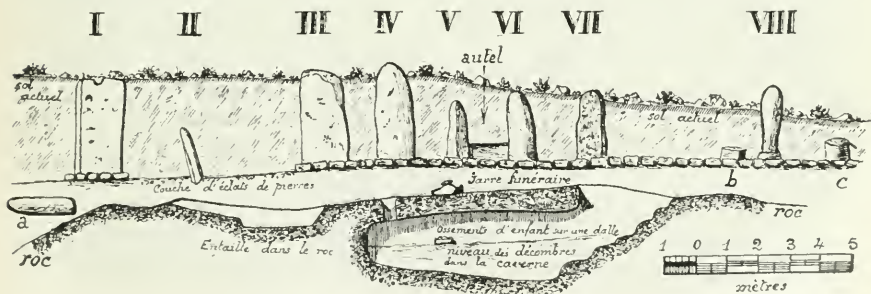 I II III IV V VI VII VIII
autel
sol
actuel
sol actuel
Couche d'éclats de pierres
Jarre funéraire
b
c
a
roc
Entaille dans le roc
Ossements d'enfant sur une dalle
niveau des décombres
dans la caverne
roc
1 0 1 2 3 4 5
mètres